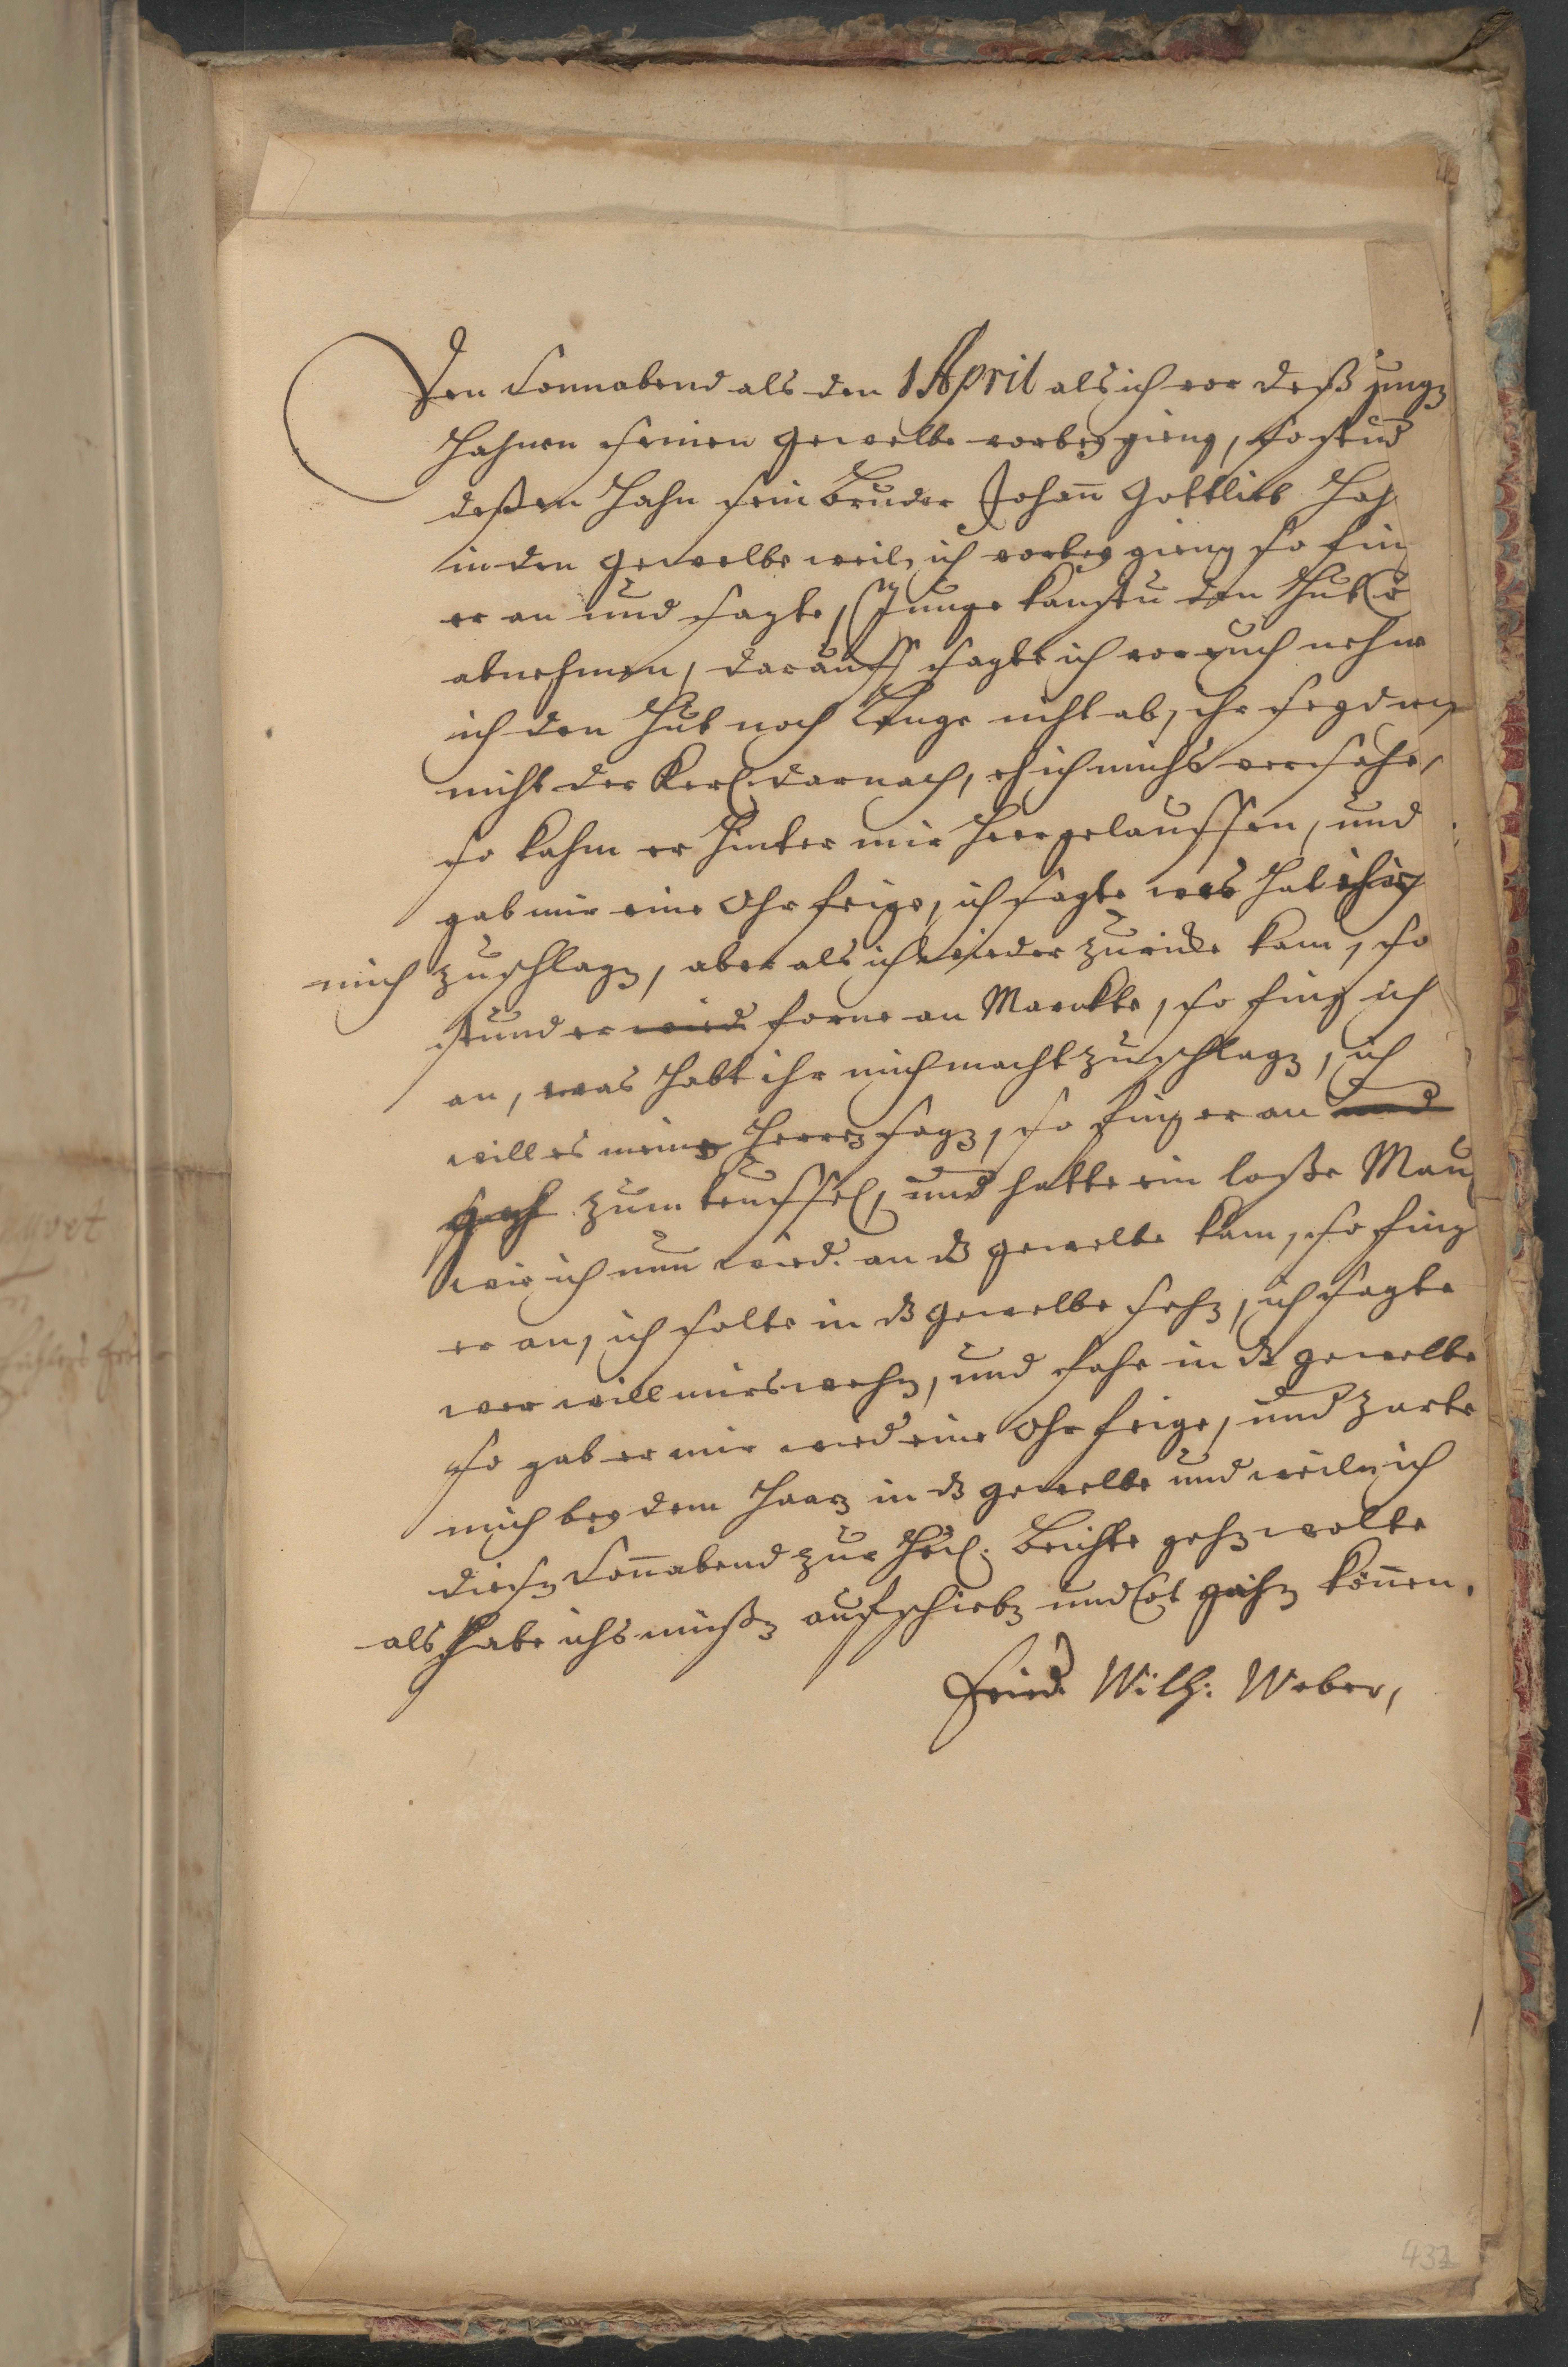 Den Sonnabend als den 1 April als ich vor deß jungen
Hahnen seinen Gewelbe vorbey gieng, so stund
deßen Hahn sein Bruder Johann Gottlieb Hah
in den Gewelbe weil, ich vorbey gieng so fing
er an und sagte, Junge kanstu den Hut
abnehmen, darauff sagte ich vor euch nehme
ich den Hut noch Lange nicht ab, ihr seyd
nicht der Kerl darnach, eh ich michs versahe,
so kahm er hinter mir heer gelauffen, und
gab mir eine Ohrfeige, ich sagte was hat
mich zuschlagen, aber als ich wieder zurücke kam, so
stund er wied forne an Marckte, so fing ich
an, was habt ihr mich macht zuschlagen, ich
will es meinen Herren sagen, so fing er an und
geh zum teuffel, und hatte ein loße Maul
wie ich nun wied. an dz gewelbe kam, so fing
er an, ich solte in dz Gewelbe sehen, ich sagte
wer will mirs wehren, und sahe in dz gewelbe
so gab er mir wied eine Ohrfeige, und zarte
mich bey dem Haaren in dz gewelbe und weiln ich
diesen Sonnabend zur Heil. Beichte gehen wolte
als habe ichs müßen aufschieben und nicht gehen können.
Fried. Wilh: Weber,
432